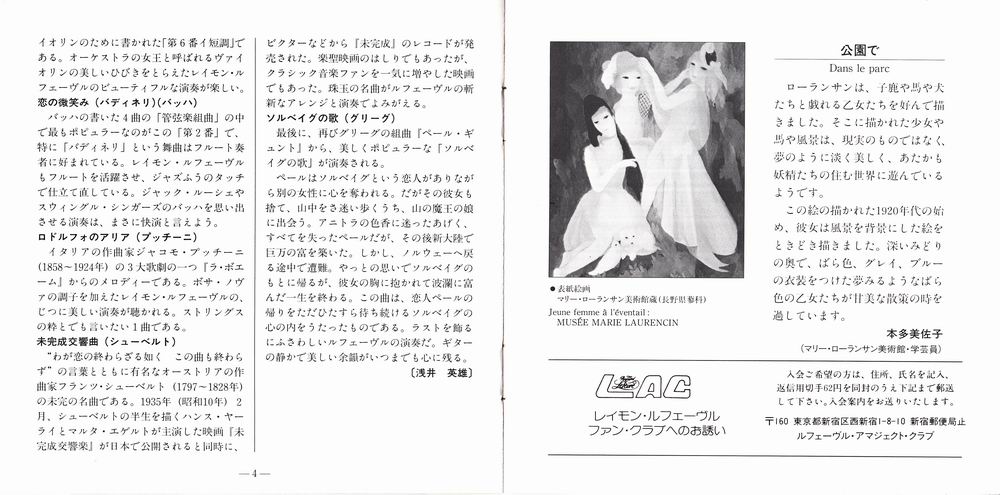 イオリンのために書かれた「第６番イ短調」で
ある。オーケストラの女王と呼ばれるヴァイ
オリンの美しいひびきをとらえたレイモン・ル
フェーヴルのビューティフルな演奏が楽しい。
恋の微笑み（バディネリ）（バッハ）
バッハの書いた４曲の「管弦楽組曲」の中
で最もポピュラーなのがこの「第２番」で、
特に「バディネリ」という舞曲はフルート奏
者に好まれている。レイモン・ルフェーヴル
もフルートを活躍させ、ジャズふうのタッチ
で仕立て直している。ジャック・ルーシェや
スウィングル・シンガーズのバッハを思い出
させる演奏は、まさに快演と言えよう。
ロドルフォのアリア（プッチーニ）
イタリアの作曲家ジャコモ・プッチーニ
(1858～1924年）の３大歌劇の一つ『ラ・ボエ
ーム』からのメロディーである。ボサ・ノヴ
ァの調子を加えたレイモン・ルフェーヴルの、
じつに美しい演奏が聴かれる。ストリングス
の粋とでも言いたい１曲である。
未完成交響曲（シューベルト）
“わが恋の終わらざる如く　この曲も終わら
ず”の言葉とともに有名なオーストリアの作
曲家フランツ・シューベルト（1797～1828年）
の未完の名曲である。1935年（昭和10年）２
月、シューベルトの半生を描くハンス・ヤー
ライとマルタ・エゲルトが主演した映画『未
完成交響楽』が日本で公開されると同時に、
ビクターなどから『未完成』のレコードが発
売された。楽聖映画のはしりでもあったが、
クラシック音楽ファンを一気に増やした映画
でもあった。珠玉の名曲がルフェーヴルの斬
新なアレンジと演奏でよみがえる。
ソルベイグの歌（グリーグ）
最後に、再びグリーグの組曲『ペール・ギ
ュント』から、美しくポピュラーな『ソルベ
イグの歌』が演奏される。
ペールはソルベイグという恋人がありなが
ら別の女性に心を奪われる。だがその彼女も
捨て、山中をさ迷い歩くうち、山の魔王の娘
に出会う。アニトラの色香に迷ったあげく、
すべてを失ったペールだが、その後新大陸で
巨万の富を築いた。しかし、ノルウェーへ戻
る途中で遭難。やっとの思いでソルベイグの
もとに帰るが、彼女の胸に抱かれて波瀾に富
んだ一生を終わる。この曲は、恋人ペールの
帰りをただひたすら待ち続けるソルベイグの
心の内をうたったものである。ラストを飾る
にふさわしいルフェーヴルの演奏だ。ギター
の静かで美しい余韻がいつまでも心に残る。
〔浅井　英雄〕
—４—
●表紙絵画
マリー・ローランサン美術館蔵（長野県蓼科）
Jeune femme à l'éventail :
MUSÉE MARIE LAURENCIN
公園で
Dans le parc
ローランサンは、子鹿や馬や犬
たちと戯れる乙女たちを好んで描
きました。そこに描かれた少女や
馬や風景は、現実のものではなく、
夢のように淡く美しく、あたかも
妖精たちの住む世界に遊んでいる
ようです。
この絵の描かれた1920年代の始
め、彼女は風景を背景にした絵を
ときどき描きました。深いみどり
の奥で、ばら色、グレイ、ブルー
の衣装をつけた夢みるようなばら
色の乙女たちが甘美な散策の時を
過しています。
本多美佐子
（マリー・ローランサン美術館・学芸員）
LAC
レイモン・ルフェーヴル
ファン・クラブへのお誘い
入会ご希望の方は、住所、氏名を記入、
返信用切手62円を同封のうえ下記まで郵送
して下さい。入会案内をお送りいたします。
〒160 東京都新宿区西新宿1-8-10 新宿郵便局止
ルフェーヴル・アマジェクト・クラブ